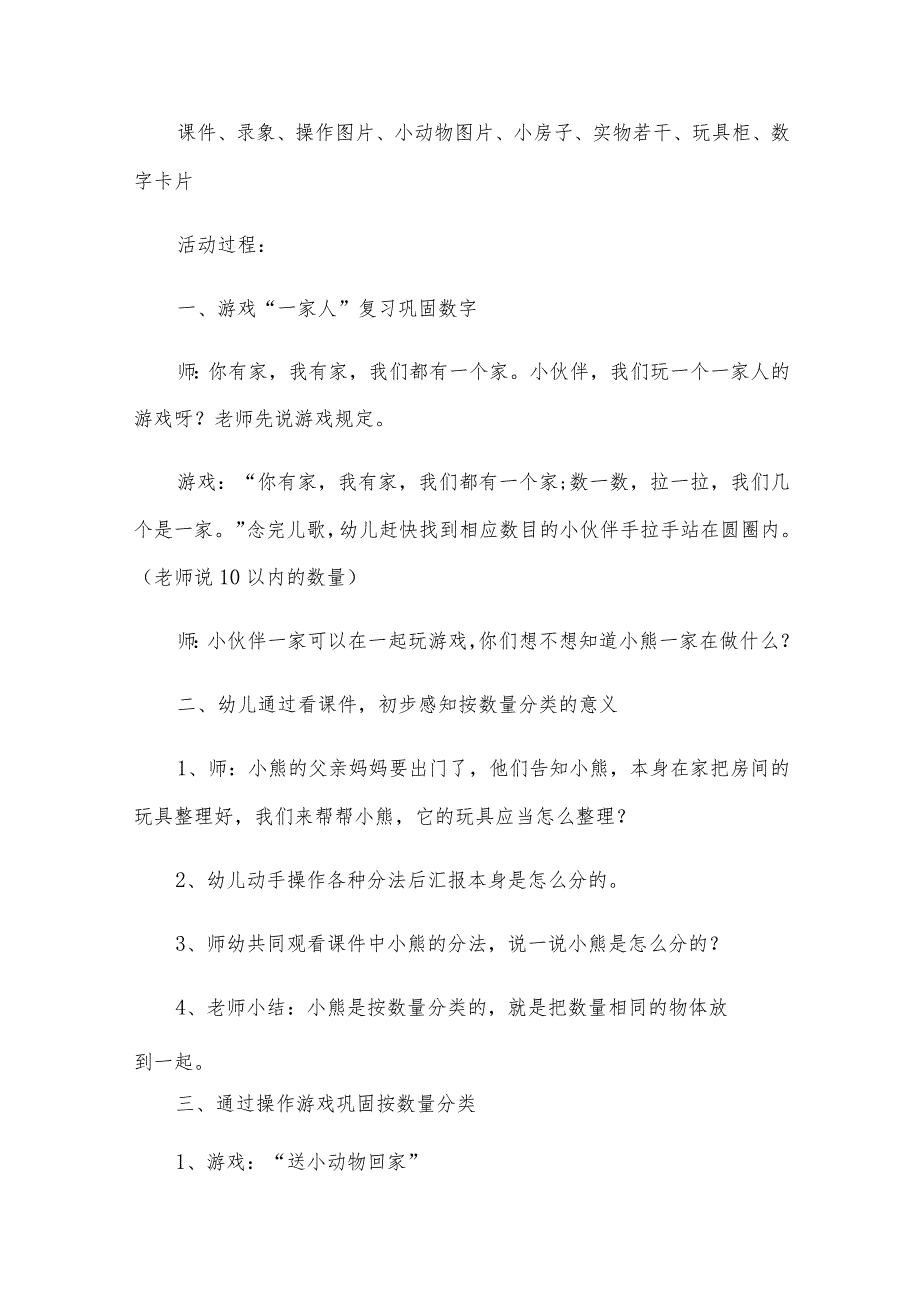 课件、录象、操作图片、小动物图片、小房子、实物若干、玩具柜、数
字卡片
活动过程：
一、游戏“一家人”复习巩固数字
师：你有家，我有家，我们都有一个家。小伙伴，我们玩一个一家人的
游戏呀？老师先说游戏规定。
游戏：“你有家，我有家，我们都有一个家;数一数，拉一拉，我们几
个是一家。”念完儿歌，幼儿赶快找到相应数目的小伙伴手拉手站在圆圈内。
（老师说10以内的数量）
师：小伙伴一家可以在一起玩游戏，你们想不想知道小熊一家在做什么？
二、幼儿通过看课件，初步感知按数量分类的意义
1、师：小熊的父亲妈妈要出门了，他们告知小熊，本身在家把房间的
玩具整理好，我们来帮帮小熊，它的玩具应当怎么整理？
2、幼儿动手操作各种分法后汇报本身是怎么分的。
3、师幼共同观看课件中小熊的分法，说一说小熊是怎么分的？
4、老师小结：小熊是按数量分类的，就是把数量相同的物体放
到一起。
三、通过操作游戏巩固按数量分类
1、游戏：“送小动物回家”